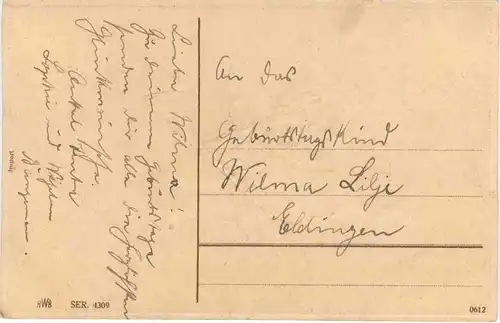 Liebe Wilma!
Zu deinem Geburtstage
senden dir alle die herzlichsten
Glückwünsche.
Onkel Tante
Sophie und
An das
Geburtstagskind
Wilma Lilje
Eldingen
SER. 4309
0612